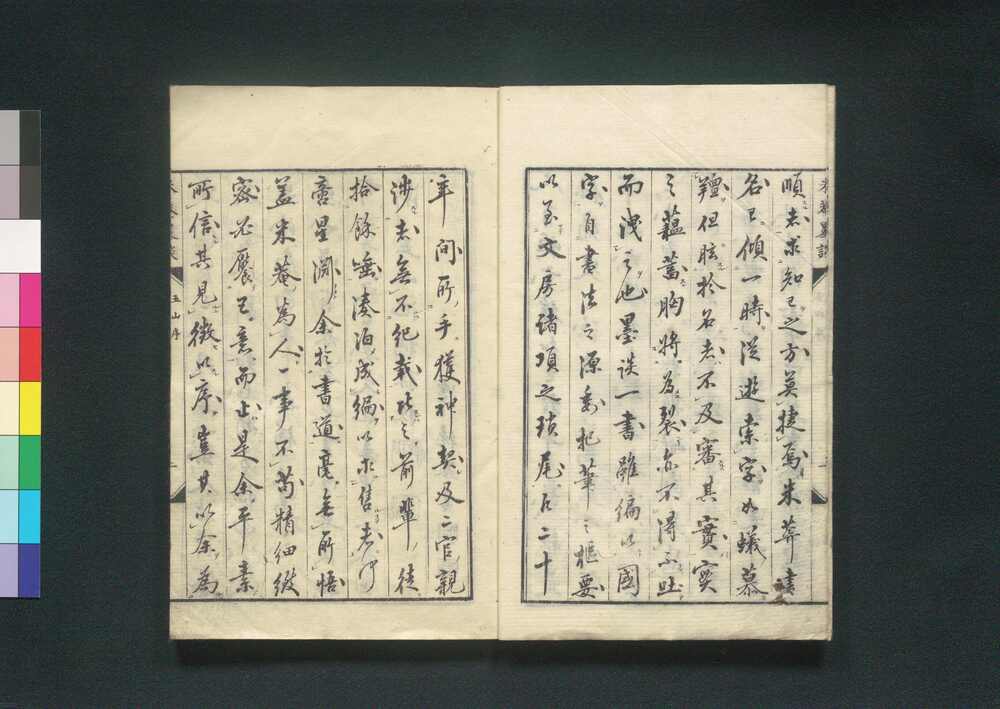 順者求知已之方莫捷焉米菴
名已傾一時従遊索字如蟻慕
羶但眩於名者不及審其實実
之蘊蓄胸将為裂亦不得不吐
而洩之也墨談一書雖編以國
字自書法之源委把筆之樞要
以至文房諸項之瑣尾凡二十
年間所手獲神契及二官親
渉者無不紀載比之前輩徒
拾餘唾湊泊成編以求售者何
啻星淵余於書道毫無所悟
蓋米菴為人一事不苟精細緻
密必饜已意而止是余平素
所信其見徴以序豈其以余為
米菴墨談
玉山序